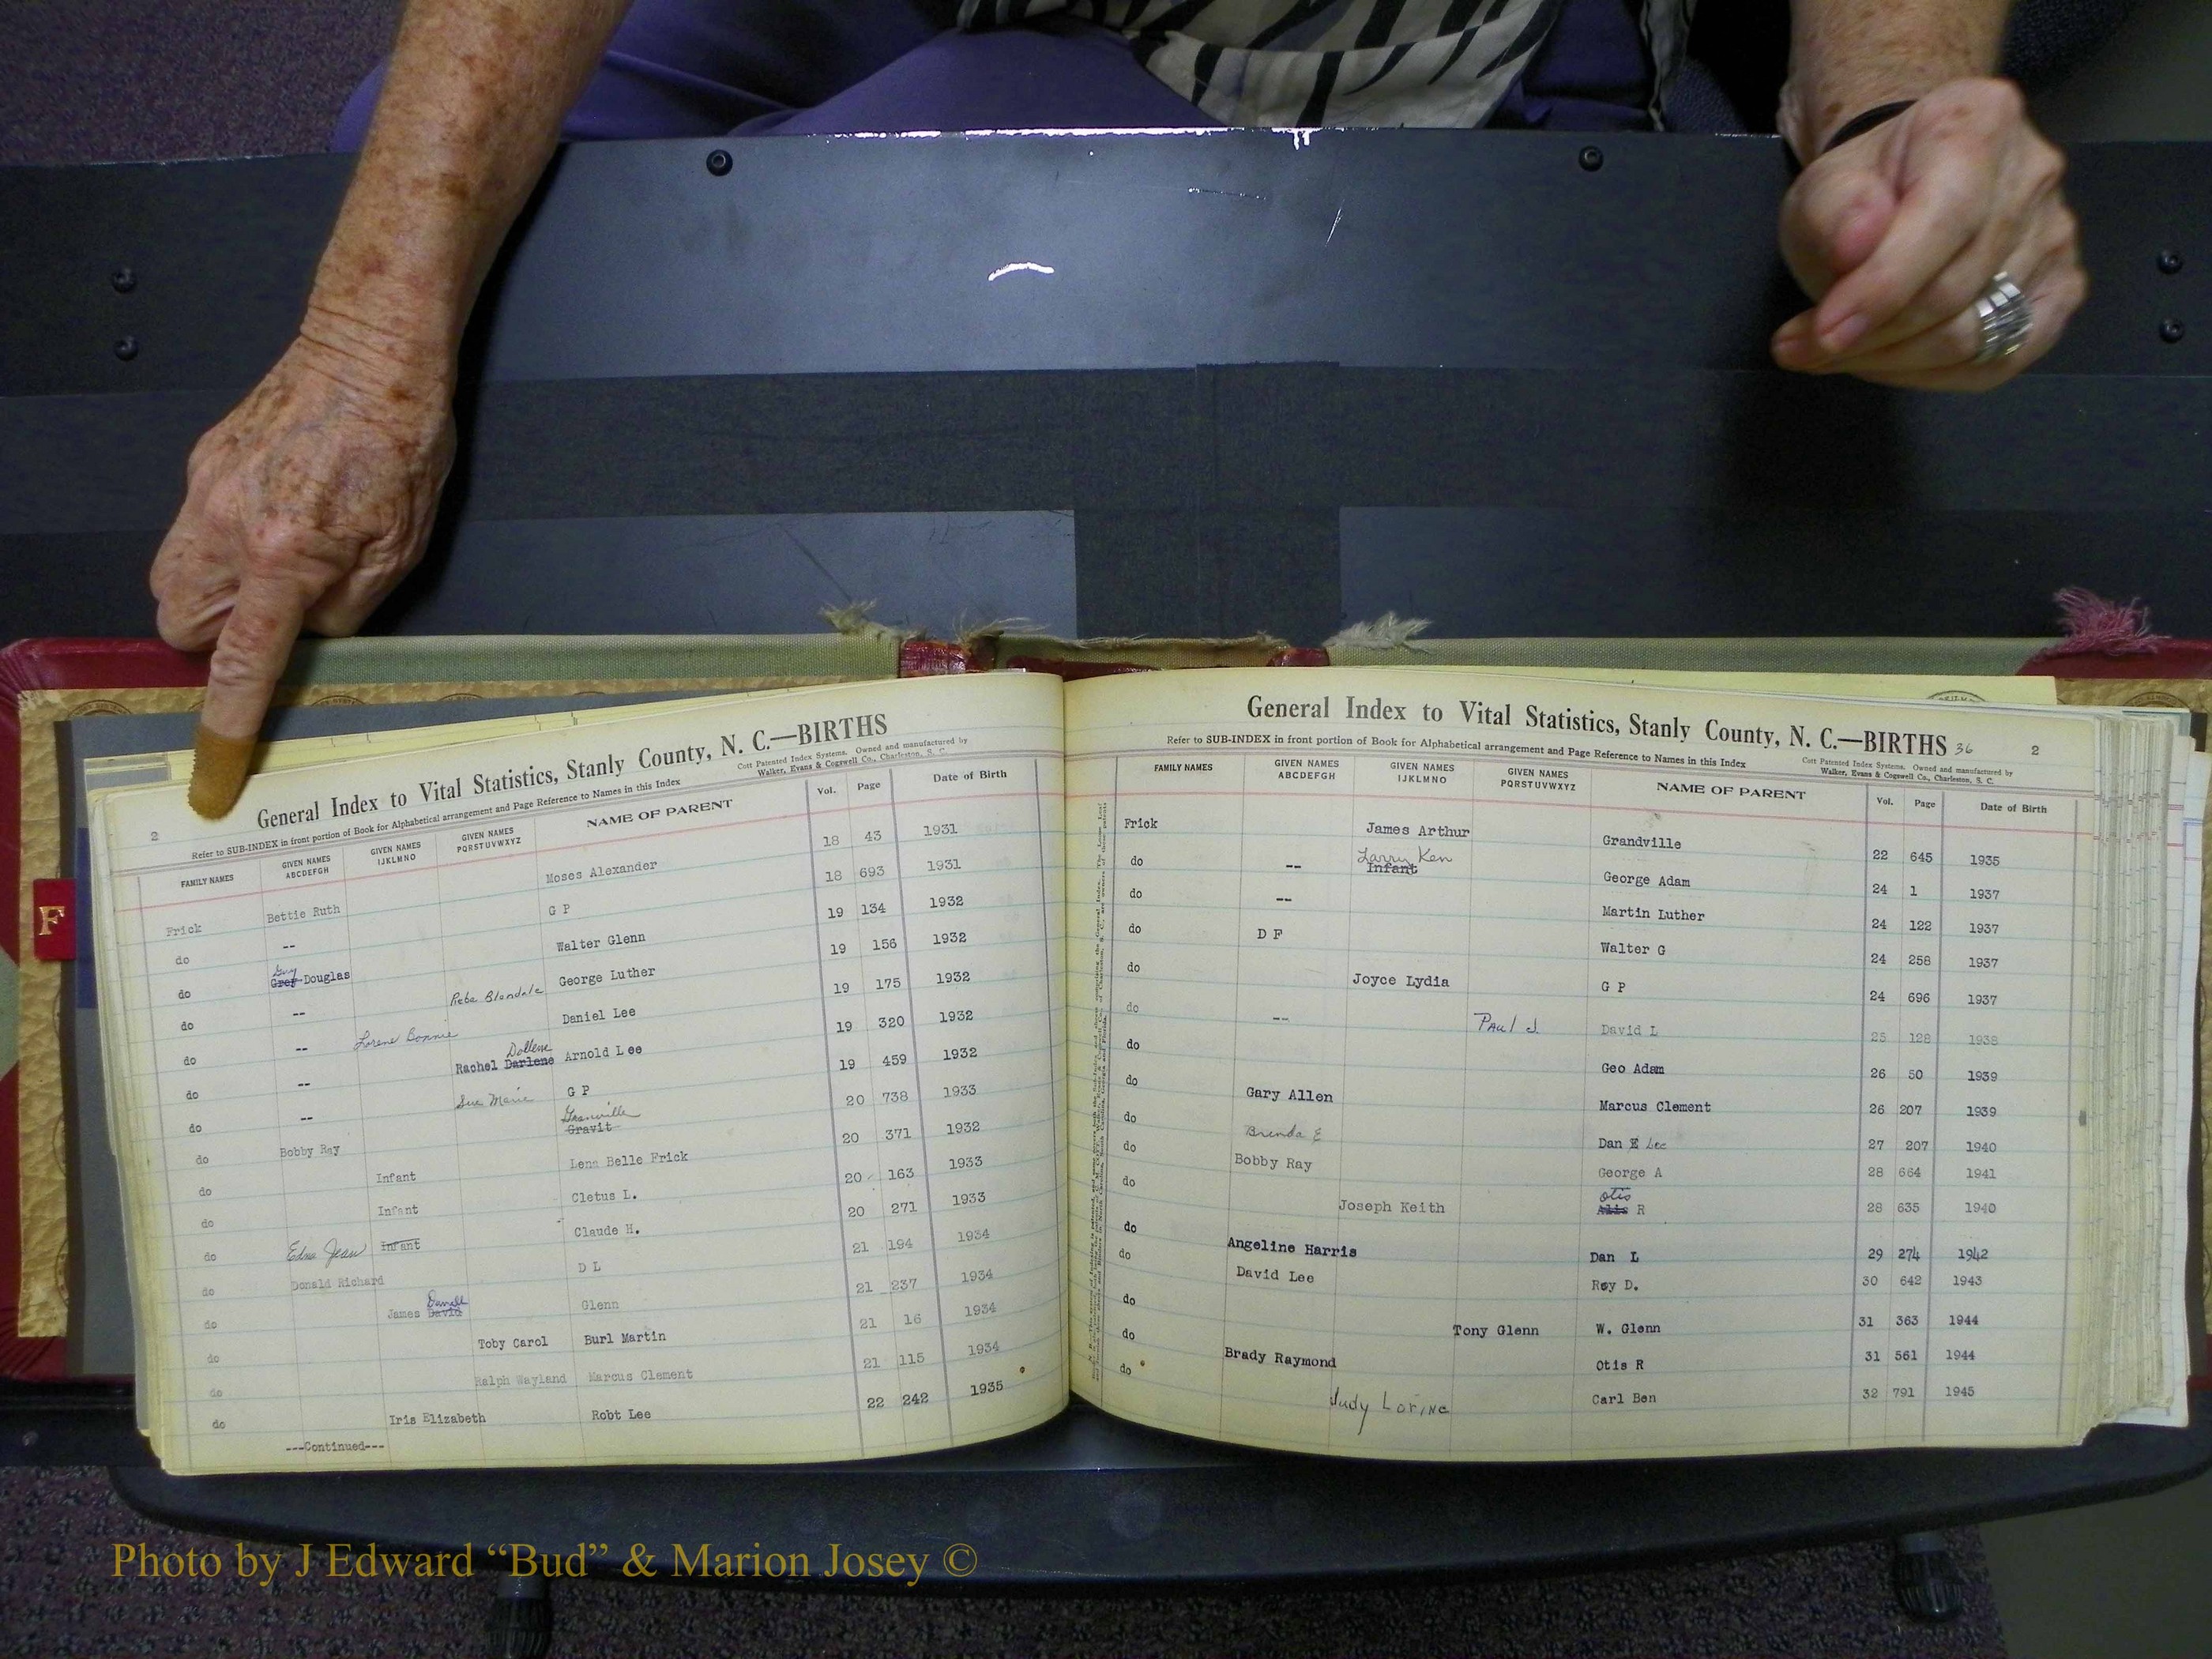 General Index to Vital Statistics, Stanly County, N. C.—BIRTHS
2
Refer to SUB-INDEX in front portion of Book for Alphabetical arrangement and Page Reference to Names in this Index
Cott Patented Index Systems. Owned and manufactured by
Walker, Evans & Cogswell Co., Charleston, S. C.
FAMILY NAMES GIVEN NAMES ABCDEFGH GIVEN NAMES IJKLMNO GIVEN NAMES PQRSTUVWXYZ NAME OF PARENT Vol. Page Date of Birth
Frick Bettie Ruth Moses Alexander 18 43 1931
do -- G P 18 693 1931
do Guy Douglas Walter Glenn 19 134 1932
do -- Reba Blondale George Luther 19 156 1932
do -- Lorene Bonnie Daniel Lee 19 175 1932
do -- Rachel Darlene Dollene Arnold Lee 19 320 1932
do -- Sue Marie G P 19 459 1932
do Bobby Ray Gravit Granville 20 738 1933
do Infant Lena Belle Frick 20 371 1932
do Infant Cletus L. 20 163 1933
do Edna Jean Infant Claude H. 20 271 1933
do Donald Richard D L 21 194 1934
do James David Darrell Glenn 21 237 1934
do Toby Carol Burl Martin 21 16 1934
do Ralph Wayland Marcus Clement 21 115 1934
do Iris Elizabeth Robt Lee 22 242 1935
---Continued---
F
General Index to Vital Statistics, Stanly County, N. C.—BIRTHS 36
2
Refer to SUB-INDEX in front portion of Book for Alphabetical arrangement and Page Reference to Names in this Index
Cott Patented Index Systems. Owned and manufactured by
Walker, Evans & Cogswell Co., Charleston, S. C.
FAMILY NAMES GIVEN NAMES ABCDEFGH GIVEN NAMES IJKLMNO GIVEN NAMES PQRSTUVWXYZ NAME OF PARENT Vol. Page Date of Birth
Frick James Arthur Grandville 22 645 1935
do -- Larry Ken Infant George Adam 24 1 1937
do -- Martin Luther 24 122 1937
do D F Walter G 24 258 1937
do Joyce Lydia G P 24 696 1937
do -- Paul J. David L 25 128 1938
do Geo Adam 26 50 1939
do Gary Allen Marcus Clement 26 207 1939
do Brenda E Dan E Lee 27 207 1940
do Bobby Ray George A 28 664 1941
do Joseph Keith Otis R 28 635 1940
do Angeline Harris Dan L 29 274 1942
do David Lee Roy D. 30 642 1943
do Tony Glenn W. Glenn 31 363 1944
do Brady Raymond Otis R 31 561 1944
do Judy Lorine Carl Ben 32 791 1945
Photo by J Edward “Bud” & Marion Josey ©